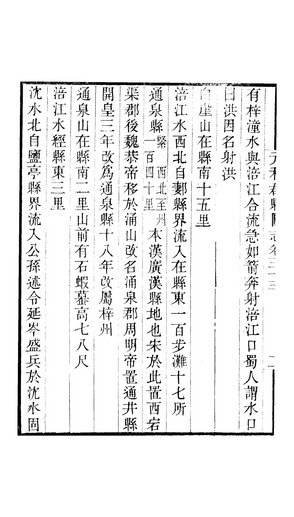 有梓潼水與涪江合流急如箭奔射涪江口蜀人謂水口
曰洪因名射洪
白崖山在縣南十五里
涪江水西北自郪縣界流入在縣東一百步灘十七所
通泉縣緊 西北至州一百四十里本漢廣漢縣地也宋於此置西宕
渠郡後魏恭帝移於涌山改名涌泉郡周明帝置通井縣
開皇三年改為通泉縣十八年改屬梓州
通泉山在縣南二里山前有石蝦蟇高七八尺
涪江水經縣東三里
沈水北自鹽亭縣界流入公孫述令延岑盛兵於沈水固